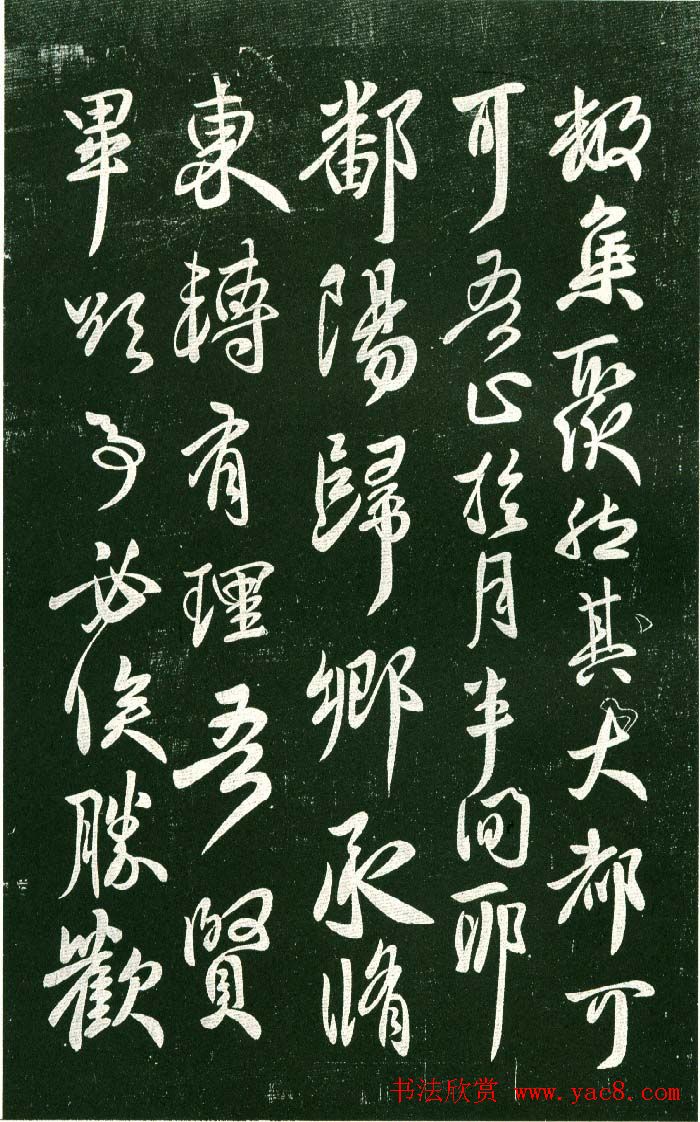 數集聚然其大都可
可吾止於月半間耶
鄱陽歸鄉承脩
東轉有理吾賢
畢欲事必俟勝歡
书法欣赏 www.yac8.com